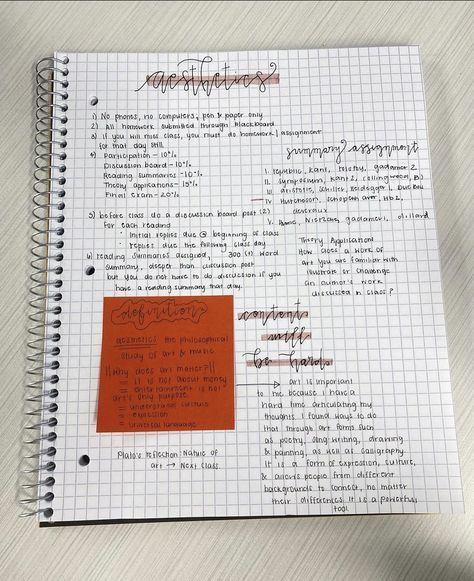 aesthetics
1) No phones, no computers, pen & paper only
2) All homework submitted through blackboard
3) If you will miss class, you must do homework/assignment
for that day still
4) Participation - 10%
Discussion board - 10%
Reading summaries - 10%
Theory applications - 15%
Final exam - 20%
5) before class do a discussion board post (2)
for each reading
initial replies due @ beginning of class
replies due the following class day
6) reading summaries assigned, 300 (+) word
summary, deeper than discussion post
but you do not have to do discussion if you
have a reading summary that day.
summary assignment
I. republic, kant, tolstoy, gadamer 2
II. symposium, kant 2, collingwood,
III. aristotle, schiller, heidegger,
IV. Hutcheson, schopenhauer,
V. Hume, Nietzsche, gadamer,
Theory Application:
How does a work of
art you are familiar with
illustrate or challenge
an author's work
discussed in class?
definitions
aesthetics: the philosophical
study of art & music
!!why does art matter?!!
= it is not about money
= entertainment is not
art's only purpose
= understand culture
= expression
= universal language
content
will
be hard
art is important
to me because I have a
hard time articulating my
thoughts I found ways to do
that through art forms such
as poetry, song writing, drawing
& painting, as well as calligraphy.
It is a form of expression, culture,
& allows people from different
backgrounds to connect, no matter
their differences. It is a powerful
tool
Plato's reflection: Nature of
art → Next class.